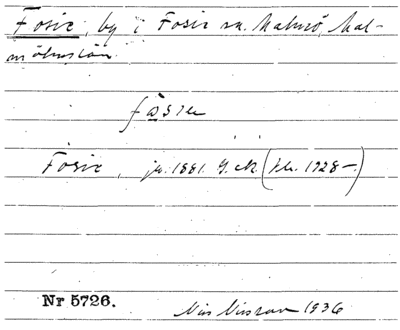 Fosie, by i Fosie sn. Malmö, Mal-
möhus län.
fòsie
Fosie, jv. 1881. G. ch. (Khr. 1928–.)
Nr 5726.
Nils Nilsson 1936